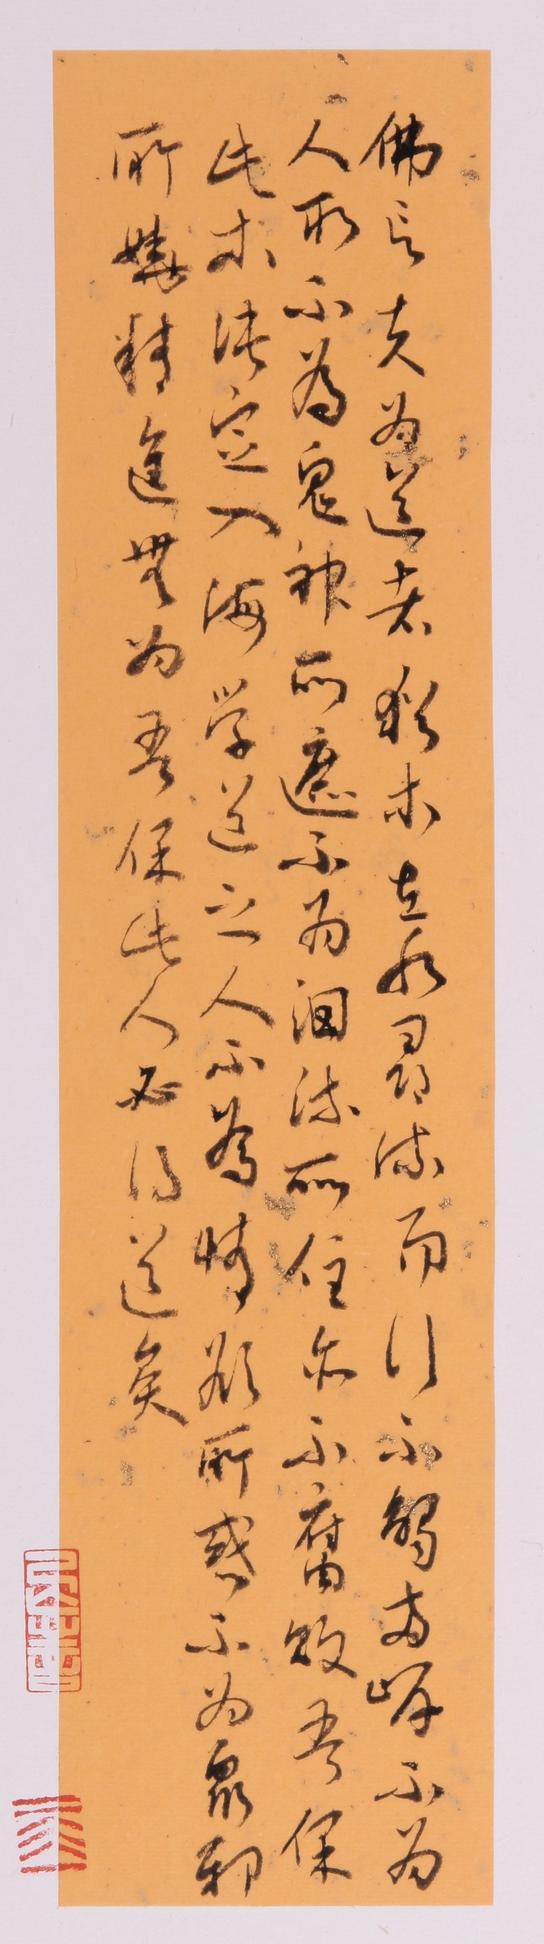 佛言夫為道者猶木在水尋流而行不觸兩岸不為
人取不為鬼神所遮不為洄流所住亦不腐敗吾保
此木決定入海学道之人不為情欲所惑不為眾邪
所嬈精進無為吾保此人必得道矣